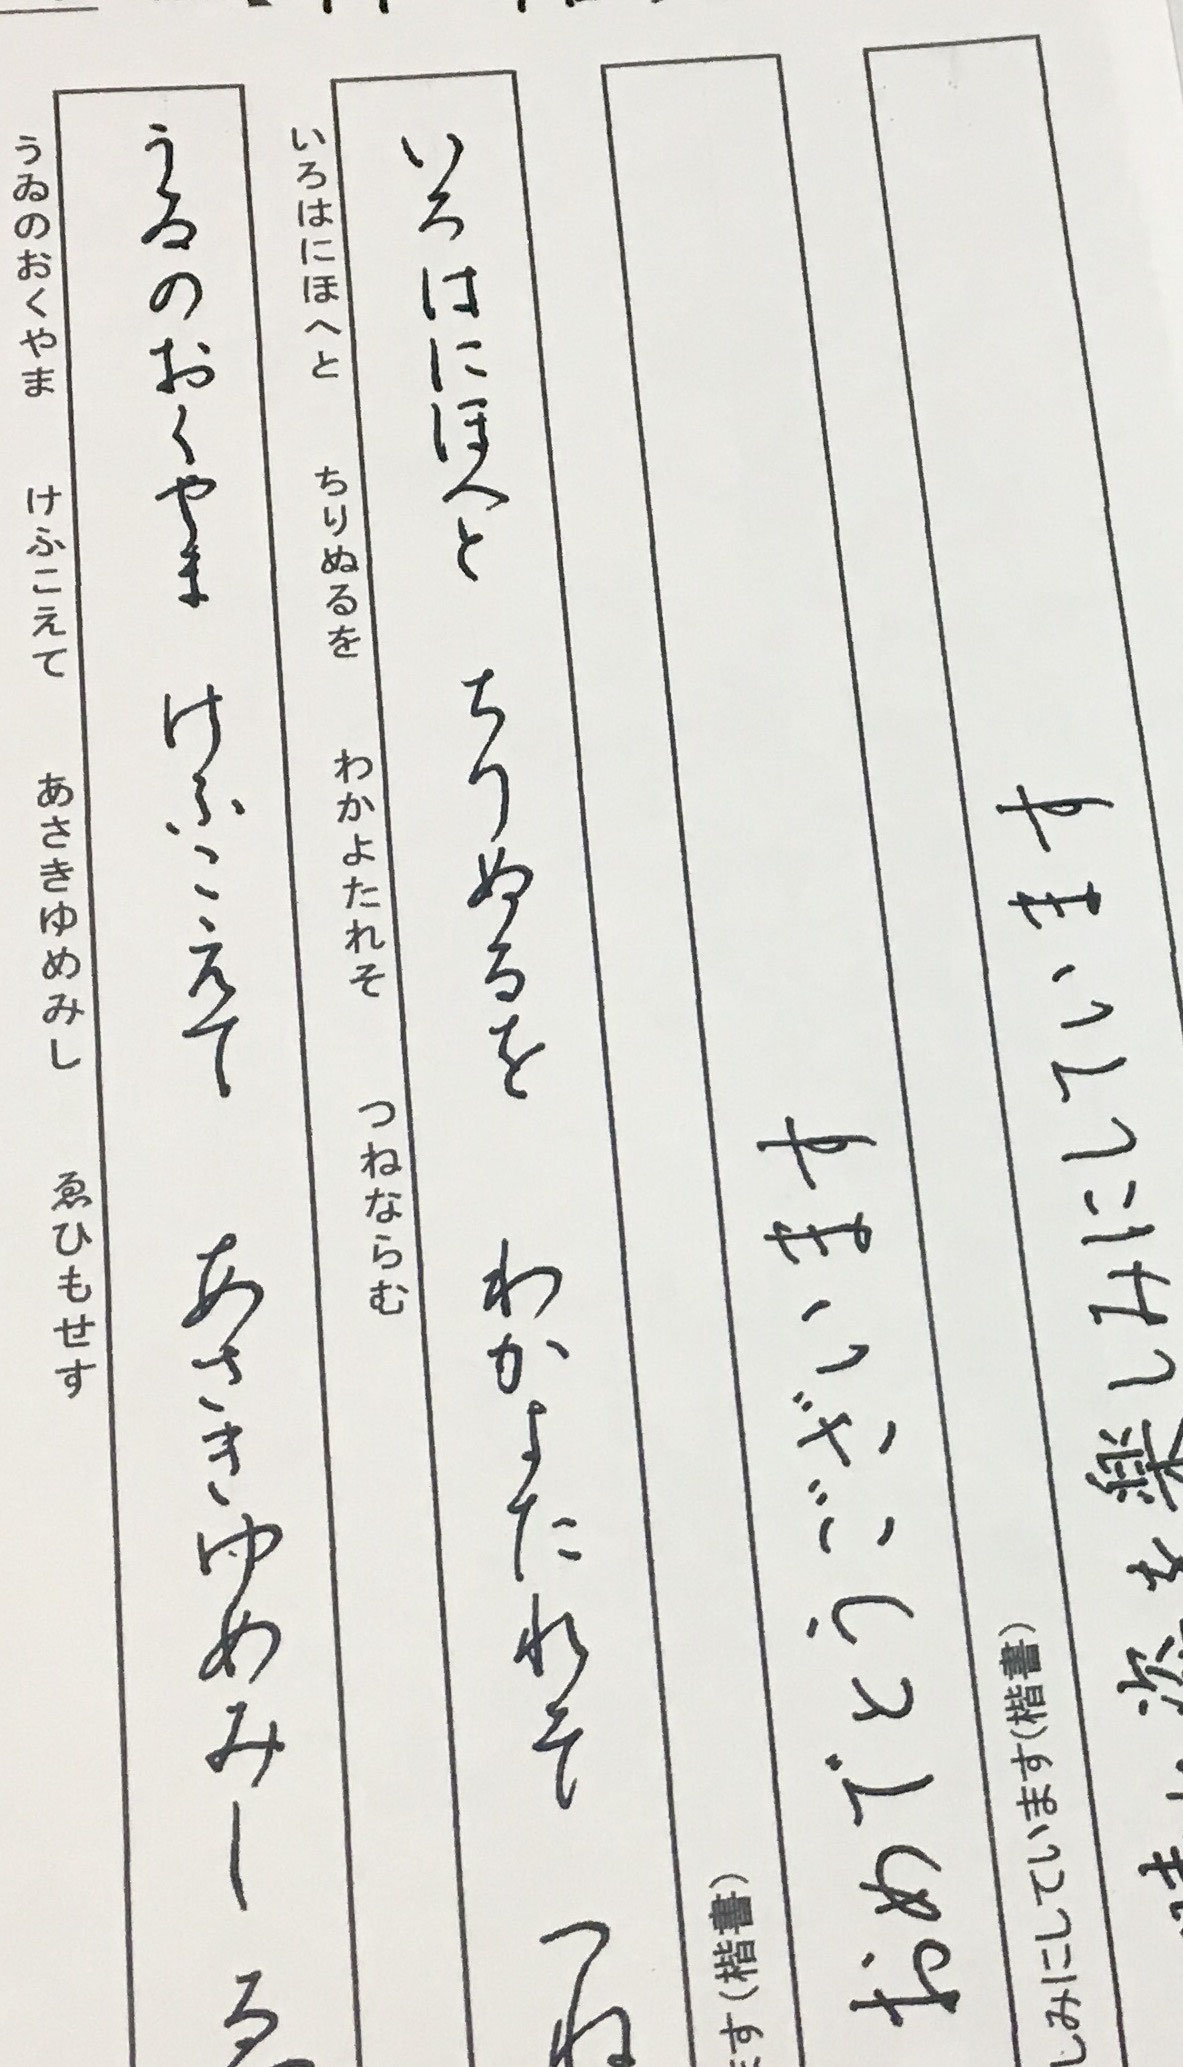 す(楷書)
おめでとうございます
しみにしています(楷書)
を楽しみにしています
いろはにほへと　ちりぬるを　わかよたれそ　つねならむ
いろはにほへと　ちりぬるを　わかよたれそ　つね
うゐのおくやま　けふこえて　あさきゆめみし　ゑひもせす
うゐのおくやま　けふこえて　あさきゆめみし